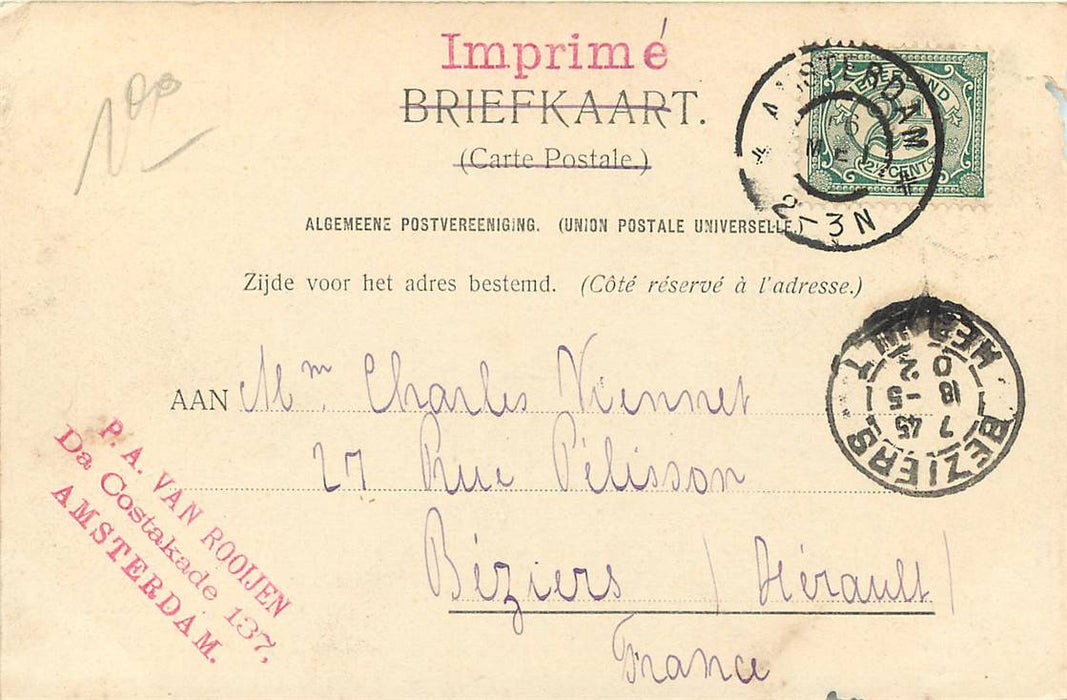 100
Imprimé
BRIEFKAART.
(Carte Postale.)
ALGEMEENE POSTVEREENIGING. (UNION POSTALE UNIVERSELLE.)
Zijde voor het adres bestemd. (Côté réservé à l'adresse.)
AMSTERDAM
6
2-3N
2½ CENT
AAN Mm. Charles Viennet
27 Rue Pélisson
Béziers (Hérault)
France
BEZIERS
7 45
18 -5
02
P. A. VAN ROOIJEN
Da Costakade 137,
AMSTERDAM.